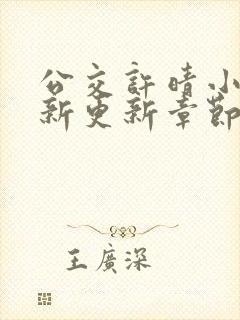 公交許晴小
新更新章節
王廣深